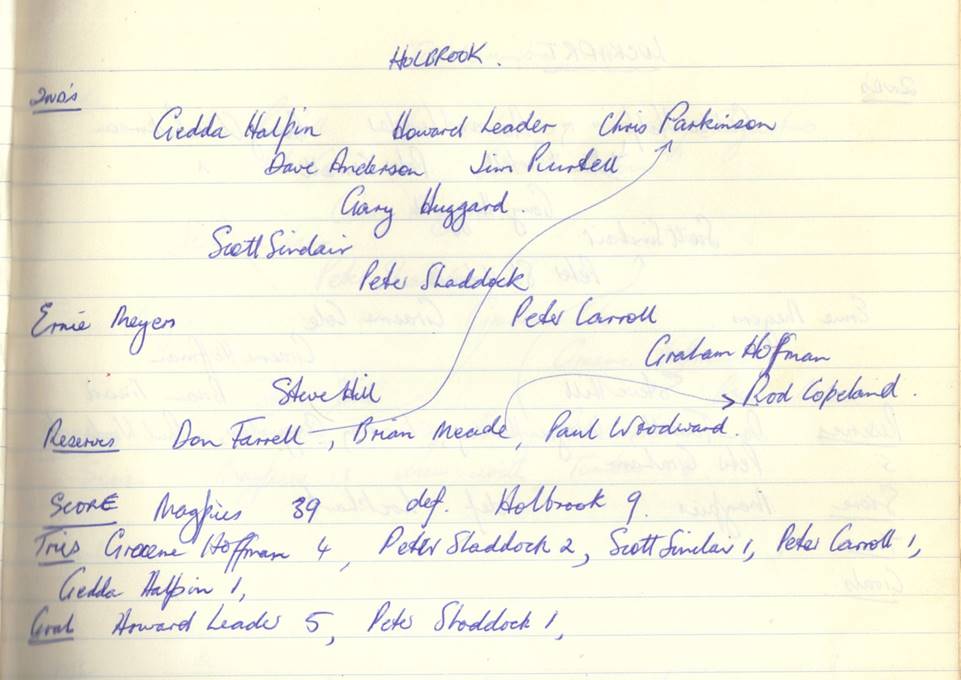 HOLBROOK.
2ND'S
Gedda Halpin Howard Leader Chris Parkinson
Dave Anderson Jim Purtell
Gary Huggard
Scott Sinclair
Peter Shaddock
Ernie Meyers Peter Carroll
Graham Hoffman
Steve Hill Rod Copeland.
Reserves Don Farrell, Brian Meade, Paul Woodward.
SCORE Magpies 39 def. Holbrook 9.
Tries Graeme Hoffman 4, Peter Shaddock 2, Scott Sinclair 1, Peter Carroll 1,
Gedda Halpin 1,
Goal Howard Leader 5, Peter Shaddock 1,